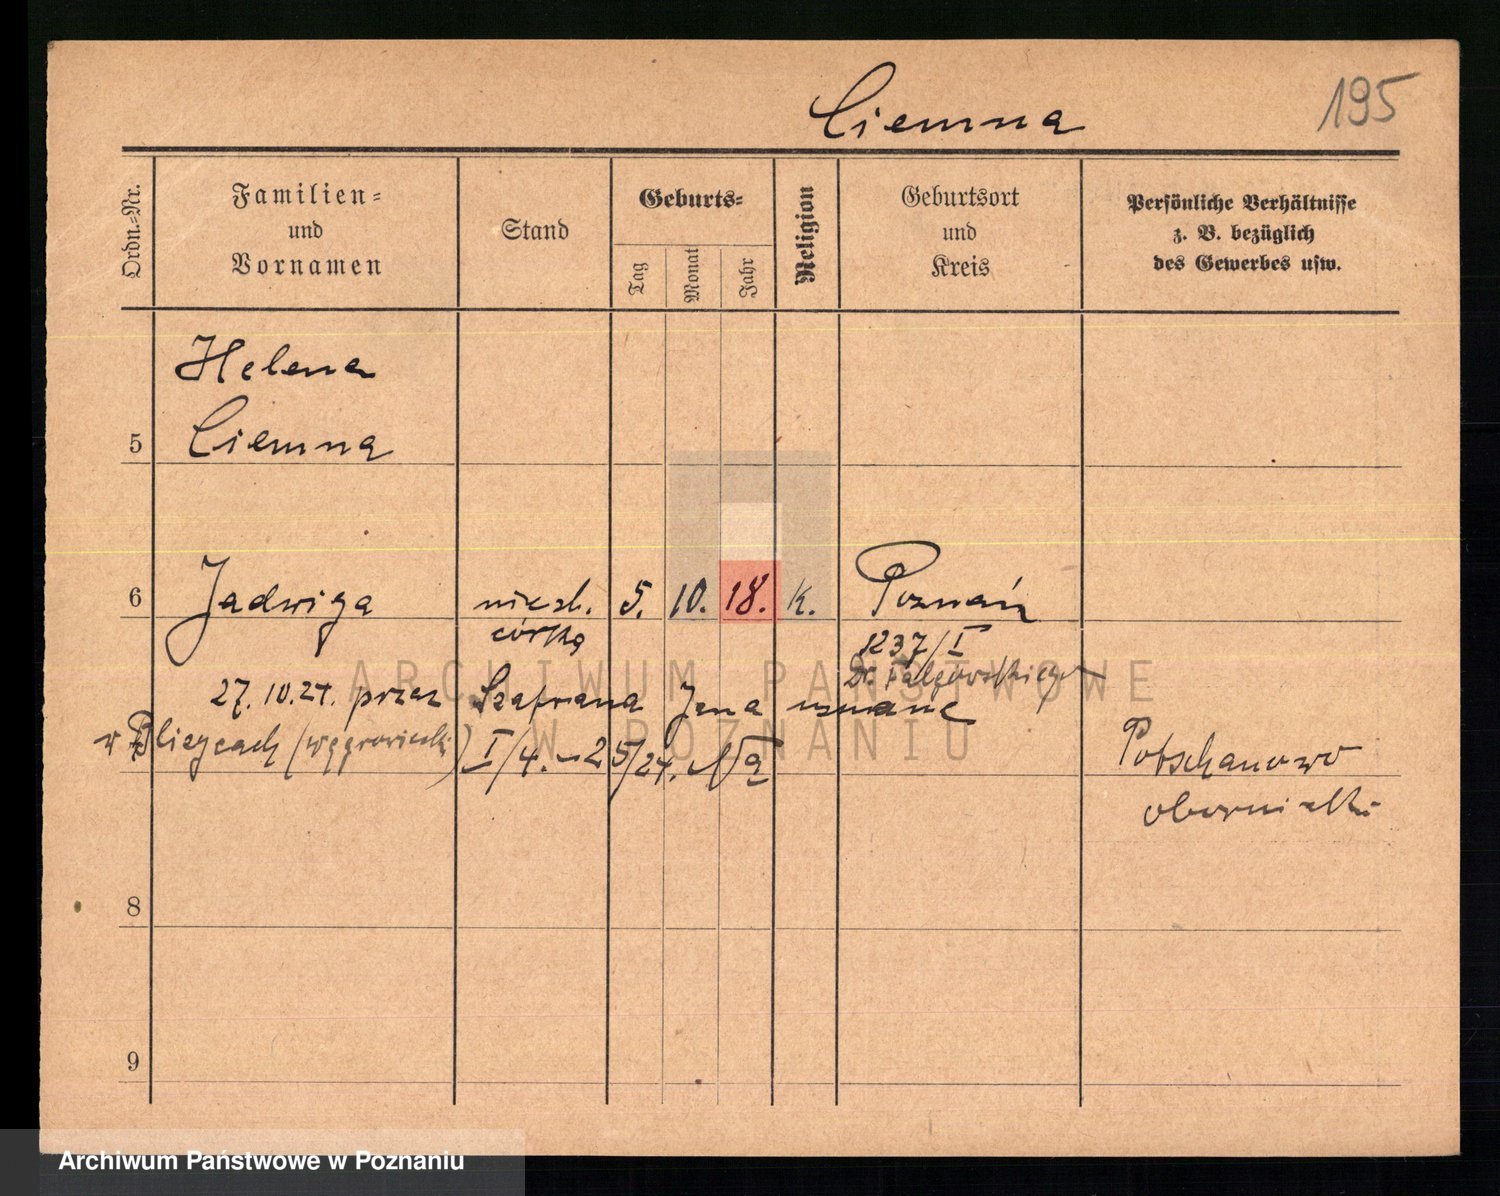 195
Ciemna
Ordn.=Nr.
Familien=
und
Vornamen
Stand
Geburts=
Tag
Monat
Jahr
Religion
Geburtsort
und
Kreis
Persönliche Verhältnisse
z. B. bezüglich
des Gewerbes usw.
Helena
5 Ciemna
6 Jadwiga niesl. 5. 10. 18. k. Poznań
córka 1237/I
27.10.24. przez Szafrana Jana uznane
I/4.-25/24.
Potschanowo
obornicki
8
9
ARCHIWUM PAŃSTWOWE
W POZNANIU
Archiwum Państwowe w Poznaniu